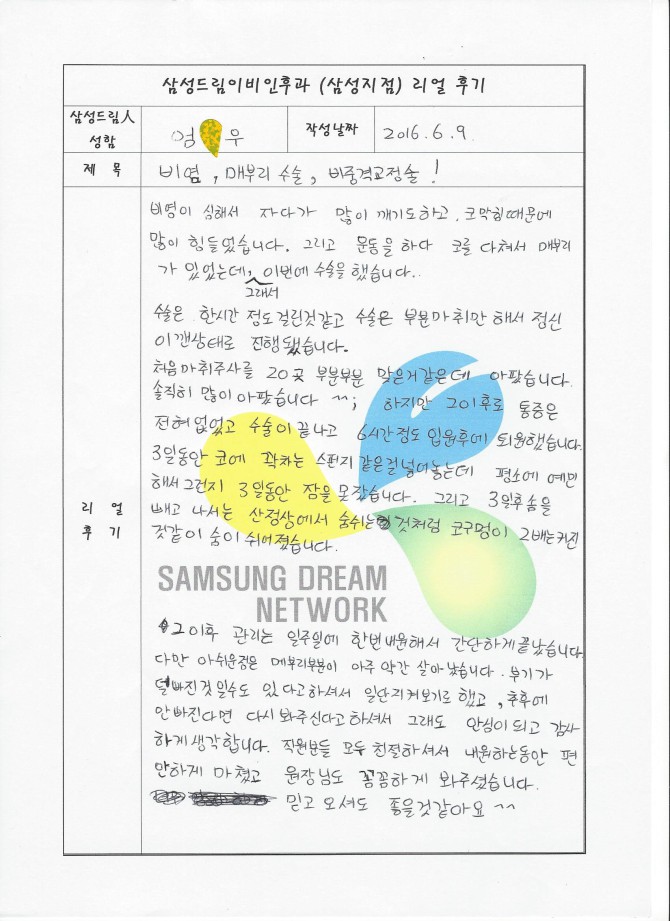 삼성드림이비인후과 (삼성지점) 리얼 후기
삼성드림人
성함
엄 우
작성날짜
2016.6.9.
제 목
비염, 매부리 수술, 비중격교정술!
비염이 심해서 자다가 많이 깨기도하고, 코막힘때문에
많이 힘들었습니다. 그리고 운동을 하다 코를 다쳐서 매부리
가 있었는데, 이번에 수술을 했습니다..
그래서
수술은 한시간 정도 걸린것같고 수술은 부분마취만 해서 정신
이 깬상태로 진행됐습니다.
처음마취주사를 20곳 부분부분 맞은거같은데 아팠습니다.
솔직히 많이아팠습니다 ^^; 하지만 그이후로 통증은
전혀없었고 수술이 끝나고 6시간정도 입원후에 퇴원했습니다.
3일동안 코에 꽉차는 스펀지 같은걸넣어놓는데 평소에 예민
해서그런지 3일동안 잠을 못잤습니다. 그리고 3일후솜을
빼고 나서는 산정상에서 숨쉬는 것처럼 코구멍이 2배는커진
것같이 숨이 쉬어졌습니다.
리 얼
후 기
SAMSUNG DREAM
NETWORK
그이후 관리는 일주일에 한번내원해서 간단하게끝났습니다.
다만 아쉬운점은 메부리부분이 아주 약간 살아났습니다. 부기가
덜빠진것일수도 있다고하셔서 일단지켜보기로 했고, 추후에
안빠진다면 다시 봐주신다고하셔서 그래도 안심이되고 감사
하게생각합니다. 직원분들 모두 친절하셔서 내원하는동안 편
안하게 마쳤고 원장님도 꼼꼼하게 봐주셨습니다.
믿고 오셔도 좋을것같아요 ^^